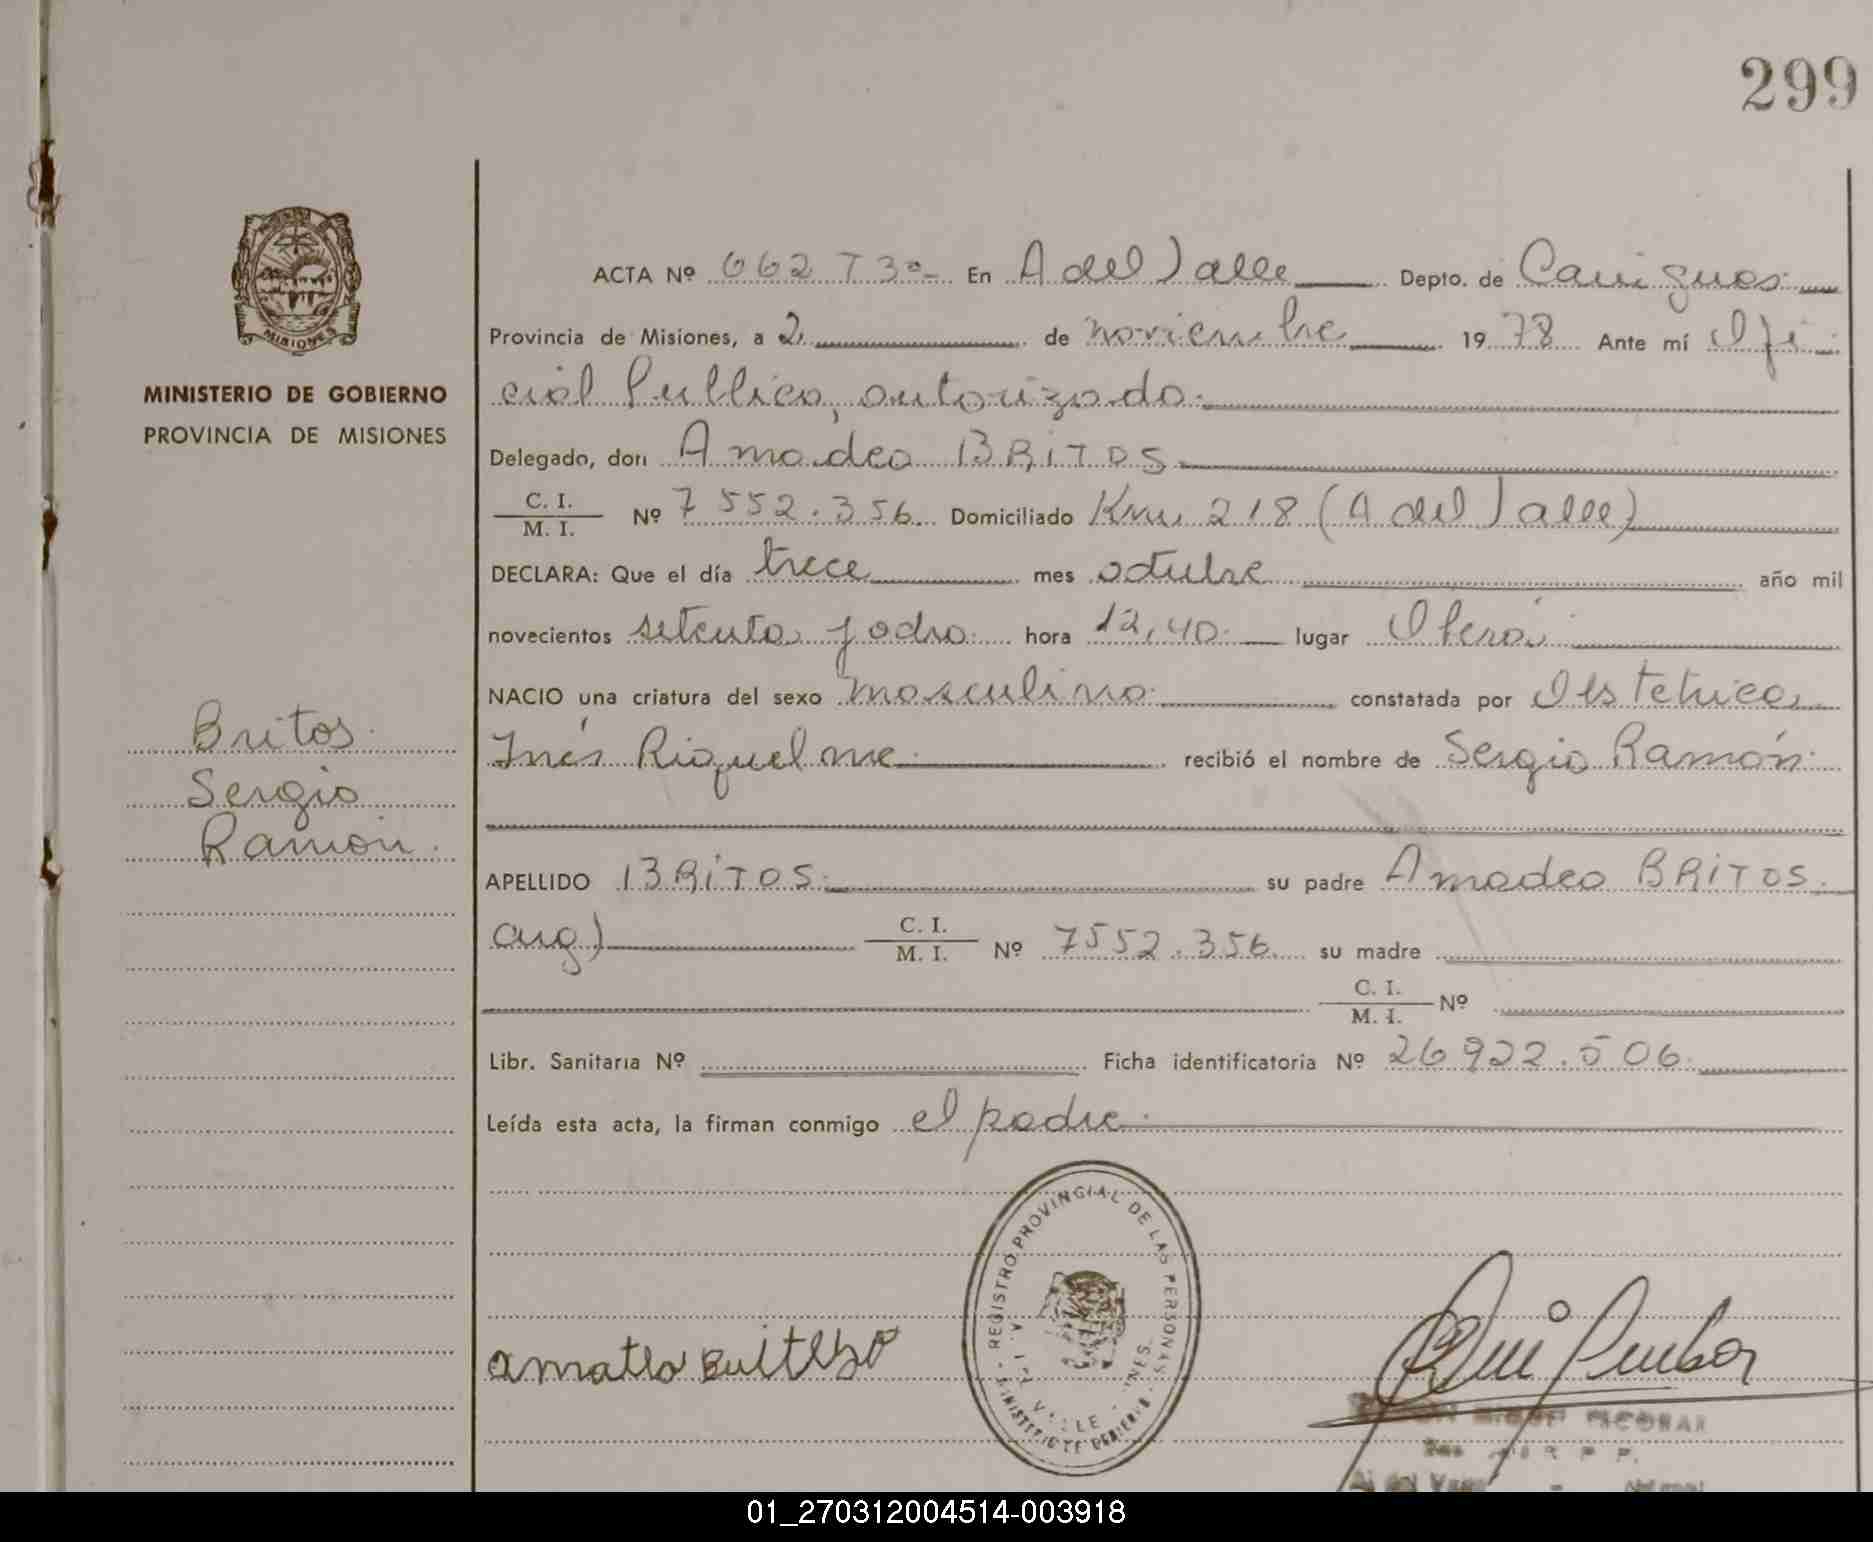 299
MISIONES
MINISTERIO DE GOBIERNO
PROVINCIA DE MISIONES
Britos.
Sergio
Ramón.
ACTA Nº 662 T3º- En A del Valle Depto. de Cainguas.
Provincia de Misiones, a 2 de noviembre 1978 Ante mí Ofi
cial Publico, autorizado.
Delegado, don Amadeo BRiTOS
C. I.
M. I. Nº 7552.356. Domiciliado Km. 218 (A del Valle)
DECLARA: Que el día trece mes octubre año mil
novecientos setenta y ocho. hora 12,40. lugar Oberá
NACIO una criatura del sexo masculino. constatada por Obstetrica
Inés Riquelme. recibió el nombre de Sergio Ramón.
APELLIDO BRiTOS. su padre Amadeo BRiTOS.
arg) C. I.
M. I. Nº 7552.356. su madre
C. I.
M. I. Nº
Libr. Sanitaria Nº Ficha identificatoria Nº 26922.506.
Leída esta acta, la firman conmigo el padre.
REGISTRO PROVINCIAL DE LAS PERSONAS
VALLE
MINISTERIO DE GOBIERNO
ESCOBAR
01_270312004514-003918